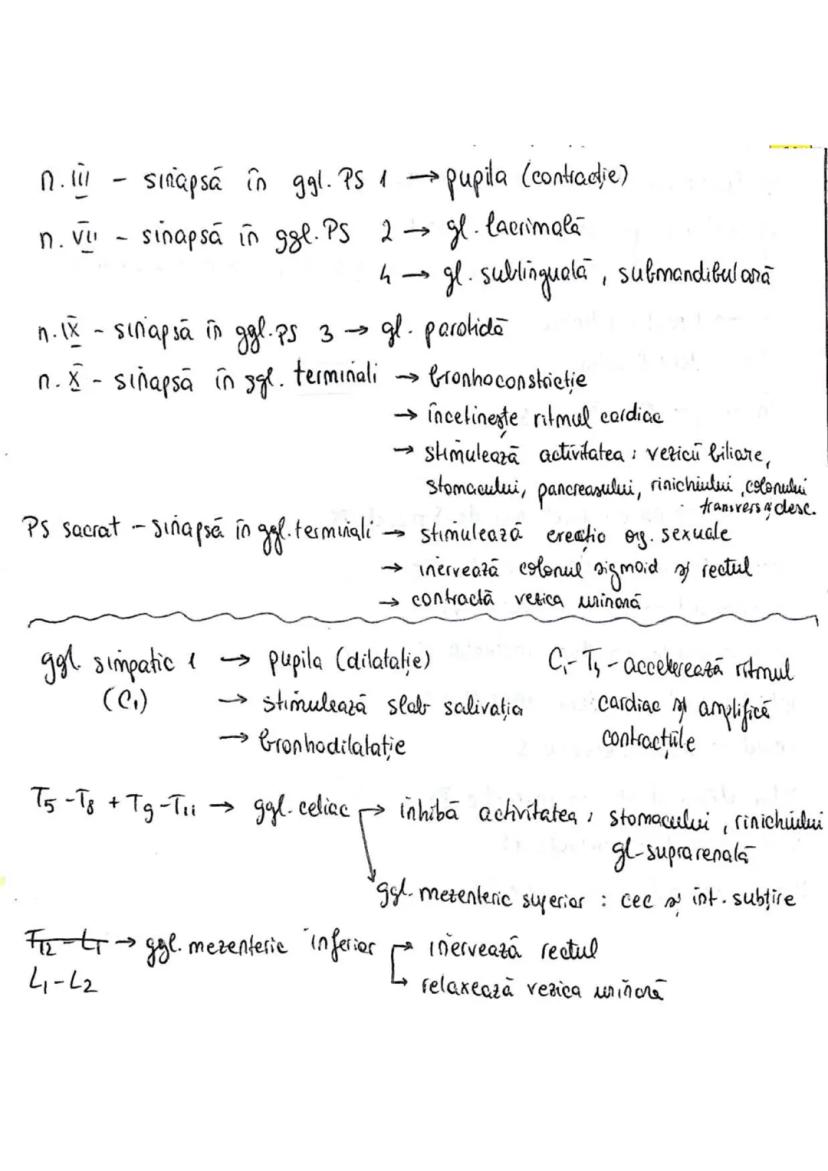 n. III - sinapsă în ggl. PS 1 → pupila (contracție)
n. VII - sinapsă în ggl. PS 2 → gl. lacrimală
4 → gl. sublinguală, submandibulară
n. IX - sinapsă în ggl. PS 3 → gl. parotidă
n. X - sinapsă în ggl. terminali → bronhoconstricție
→ încetinește ritmul cardiac
→ stimulează activitatea: vezicii biliare,
stomacului, pancreasului, rinichiului, colonului
transvers și desc.
PS sacrat - sinapsă în ggl. terminali → stimulează erecția org. sexuale
→ inervează colonul sigmoid și rectul
→ contractă vezica urinară
ggl. simpatic 1 → pupila (dilatație)
(C1) → stimulează slab salivația
→ bronhodilatație
C1-T5 - accelerează ritmul
cardiac și amplifică
contracțiile
T5-T8 + T9-T11 → ggl. celiac → inhibă activitatea: stomacului, rinichiului
gl. suprarenală
ggl. mezenteric superior: cec și int. subțire
T12-L1 → ggl. mezenteric inferior → inervează rectul
L1-L2 → relaxează vezica urinară